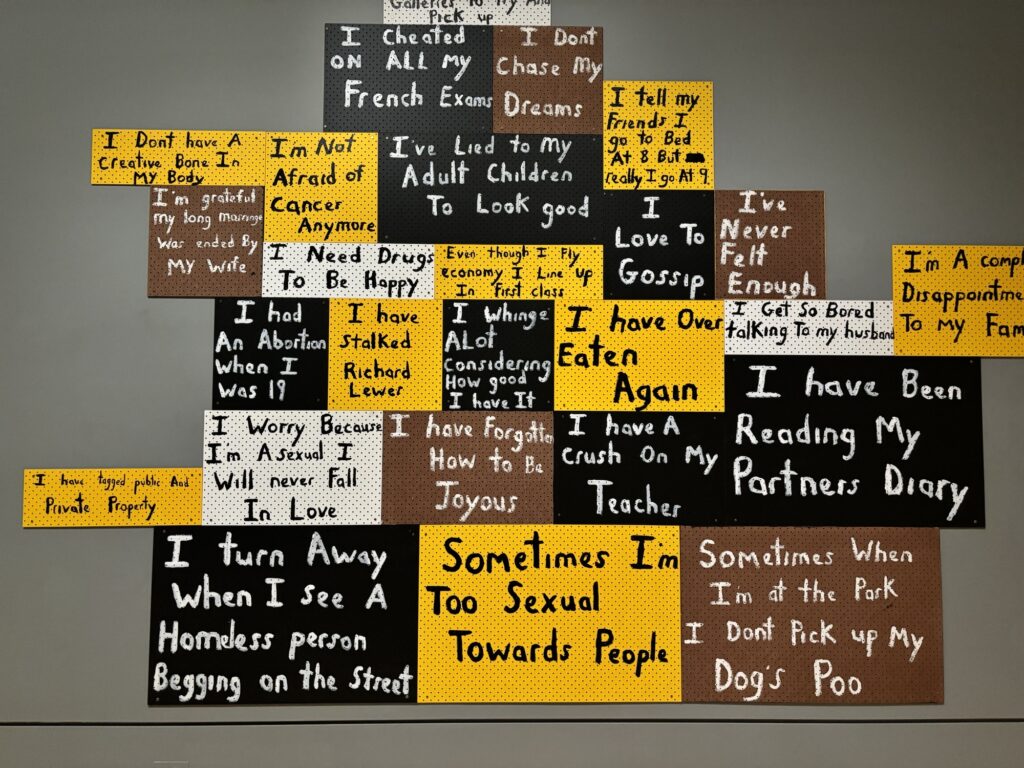 Galleries To Try And
Pick up
I Cheated
ON ALL My
French Exams
I Dont
Chase My
Dreams
I tell my
Friends I
go to Bed
At 8 But
really I go At 9.
I Dont have A
Creative Bone In
My Body
I'm Not
Afraid of
Cancer
Anymore
I've Lied to My
Adult Children
To Look good
I'm grateful
my long marriage
Was ended By
MY Wife
I
Love To
Gossip
I've
Never
Felt
Enough
I Need Drugs
To Be Happy
Even though I Fly
economy I Line up
In First class
I'm A
Disappointme
To My Fam
I had
An Abortion
When I
Was 19
I have
Stalked
Richard
Lewer
I Whinge
ALot
Considering
How good
I have It
I have Over
Eaten
Again
I Get So Bored
talking To my husband
I have Been
Reading My
Partners Diary
I Worry Because
I'm Asexual I
Will never Fall
In Love
I have Forgotten
How to Be
Joyous
I have A
Crush On My
Teacher
I have tagged public And
Private Property
I turn Away
When I see A
Homeless person
Begging on the Street
Sometimes I'm
Too Sexual
Towards People
Sometimes When
I'm at the Park
I Dont Pick up My
Dog's Poo